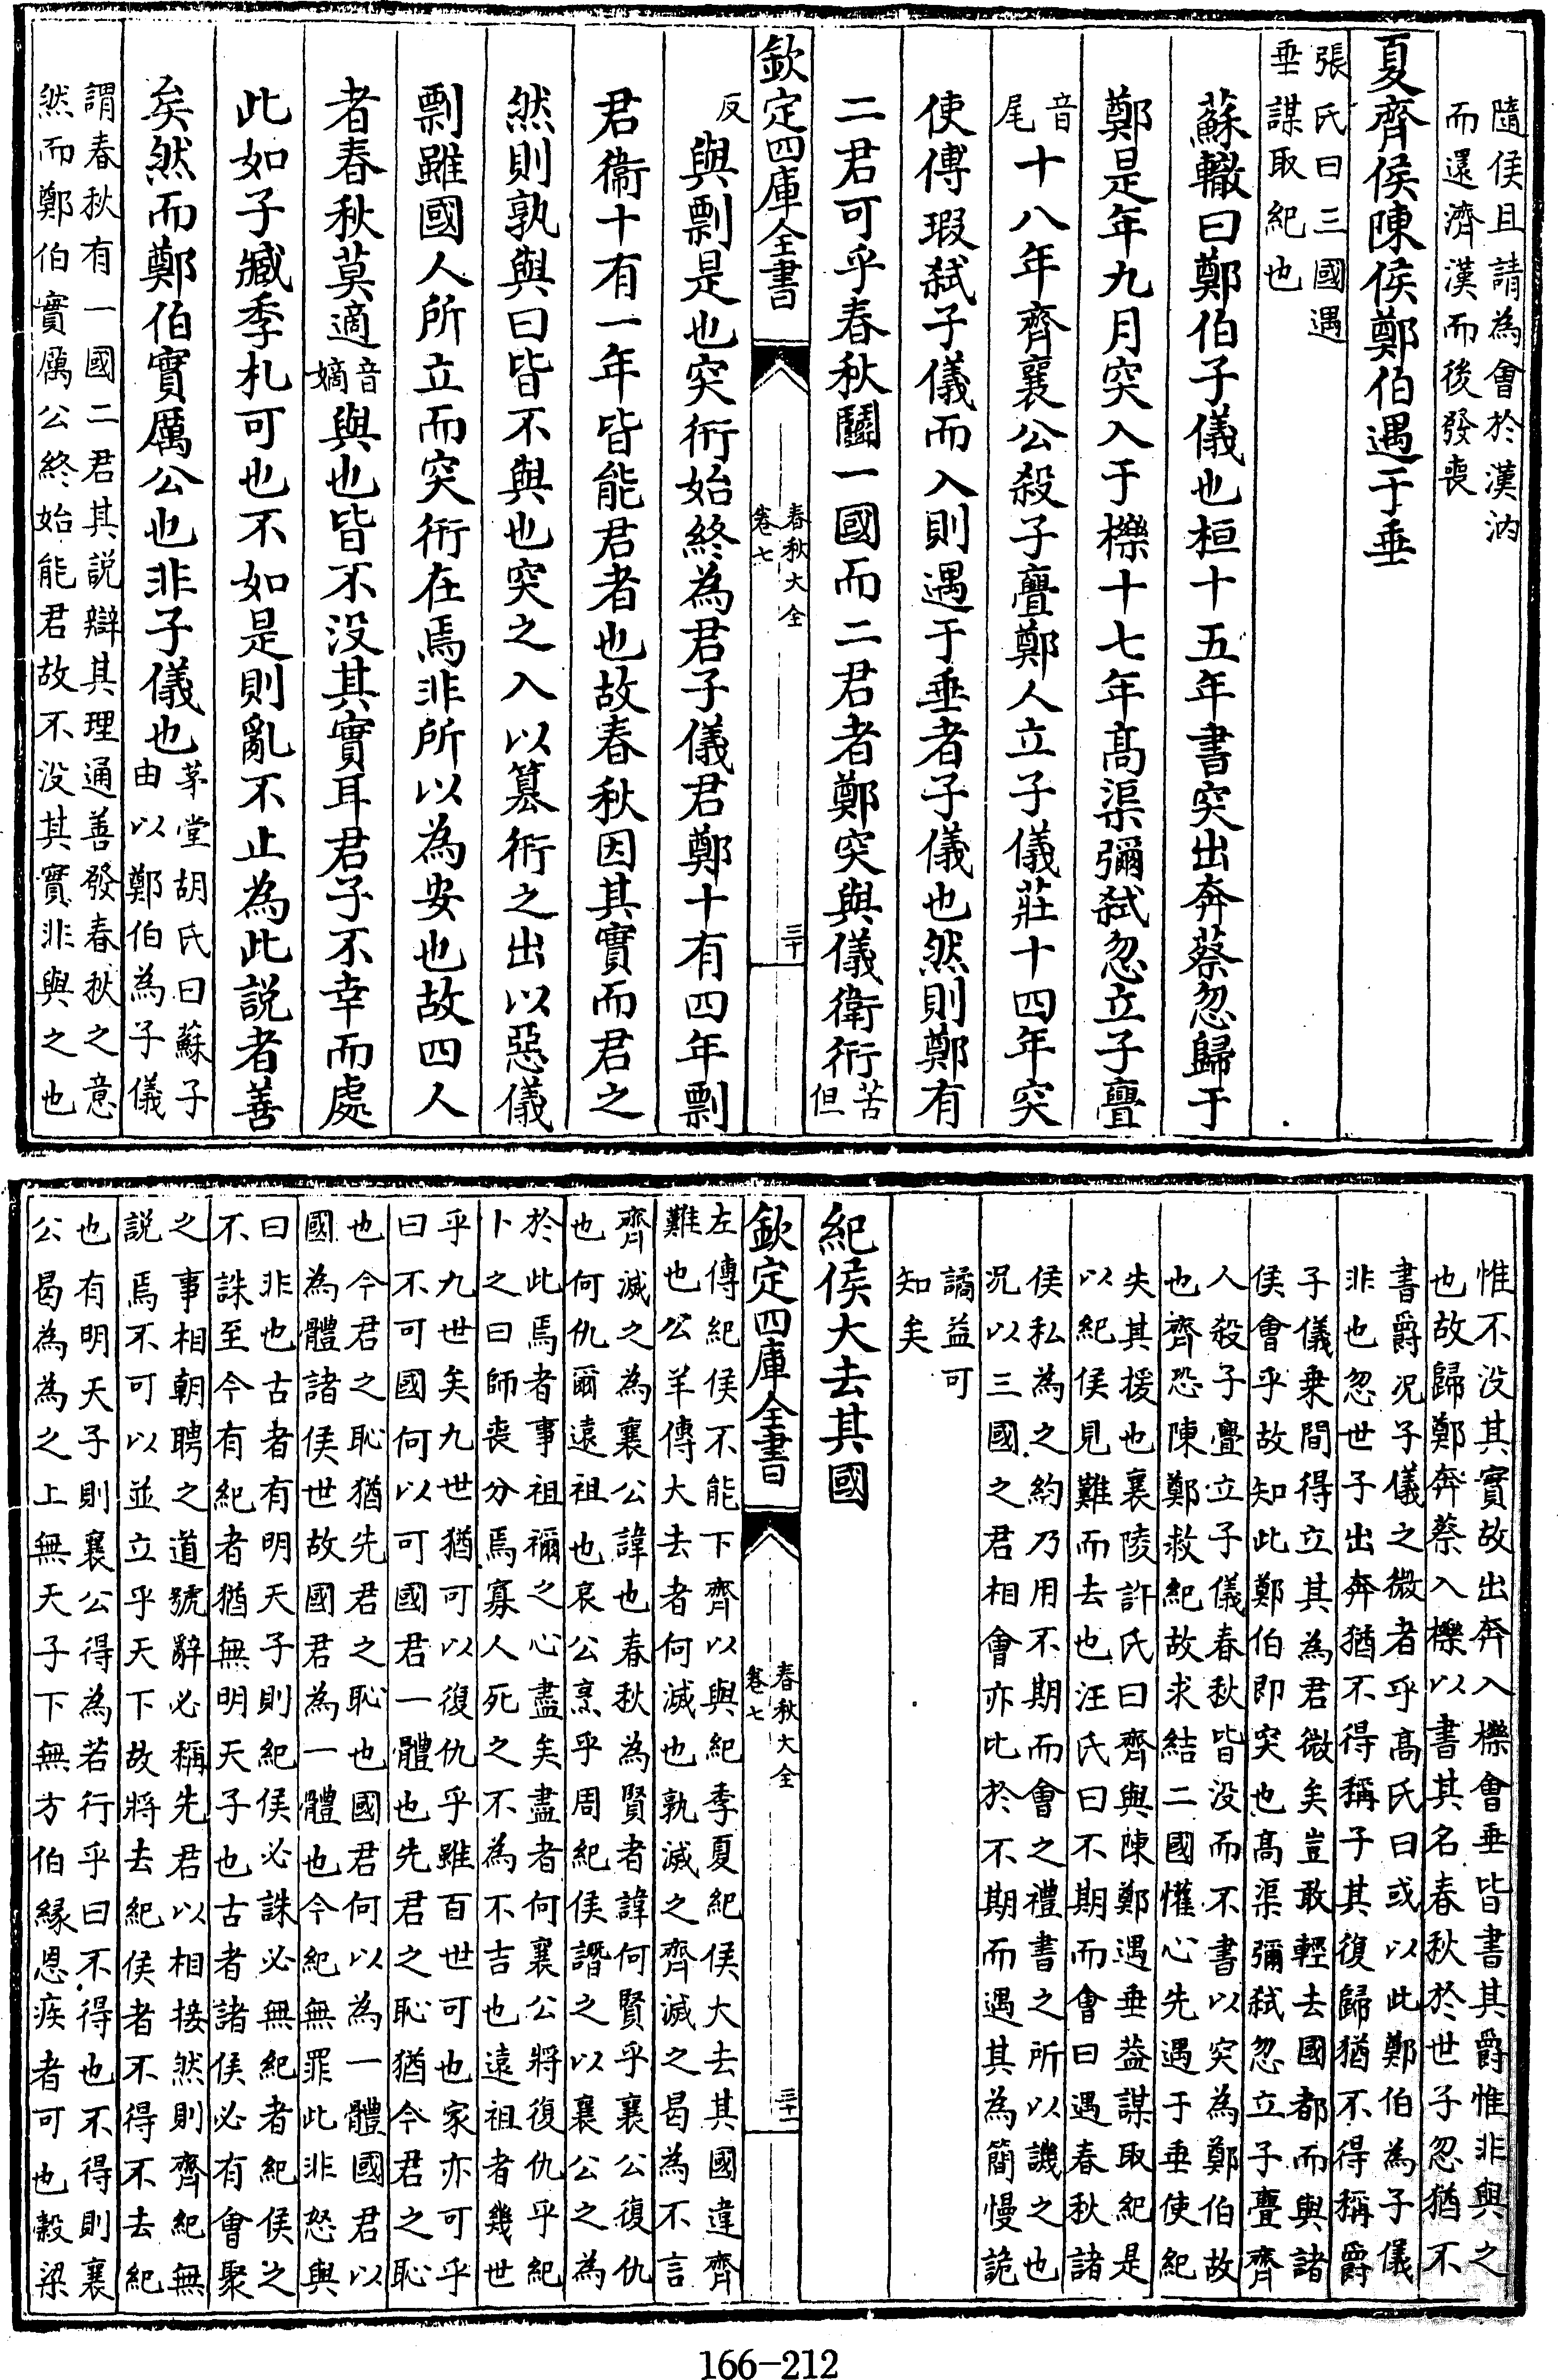 隨侯且請為會於漢汭
而還濟漢而後發喪
夏齊侯陳侯鄭伯遇于垂
張氏曰三國遇
垂謀取紀也
蘇轍曰鄭伯子儀也桓十五年書突出奔蔡忽歸于
鄭是年九月突入于櫟十七年高渠彌弑忽立子亹
音
尾
十八年齊襄公殺子亹鄭人立子儀莊十四年突
使傅瑕弑子儀而入則遇于垂者子儀也然則鄭有
二君可乎春秋鬭一國而二君者鄭突與儀衛衎
苦
但
欽定四庫全書
春秋大全
卷七
三十
反
與剽是也突衎始終為君子儀君鄭十有四年剽
君衞十有一年皆能君者也故春秋因其實而君之
然則孰與曰皆不與也突之入以簒衎之出以惡儀
剽雖國人所立而突衎在焉非所以為安也故四人
者春秋莫適
音
嫡
與也皆不没其實耳君子不幸而處
此如子臧季札可也不如是則亂不止為此説者善
矣然而鄭伯實厲公也非子儀也
茅堂胡氏曰蘇子
由以鄭伯為子儀
謂春秋有一國二君其説辯其理通善發春秋之意
然而鄭伯實厲公終始能君故不没其實非與之也
惟不没其實故出奔入櫟會垂皆書其爵惟非與之
也故歸鄭奔蔡入櫟以書其名春秋於世子忽猶不
書爵况子儀之微者乎高氏曰或以此鄭伯為子儀
非也忽世子出奔猶不得稱子其復歸猶不得稱爵
子儀乗間得立其為君微矣豈敢輕去國都而與諸
侯會乎故知此鄭伯即突也高渠彌弑忽立子亹齊
人殺子亹立子儀春秋皆没而不書以突為鄭伯故
也齊恐陳鄭救紀故求結二國懽心先遇于垂使紀
失其援也襄陵許氏曰齊與陳鄭遇垂葢謀取紀是
以紀侯見難而去也汪氏曰不期而會曰遇春秋諸
侯私為之約乃用不期而會之禮書之所以譏之也
况以三國之君相會亦比於不期而遇其為簡慢詭
譎益可
知矣
紀侯大去其國
欽定四庫全書
春秋大全
卷七
三十一
左傳紀侯不能下齊以與紀季夏紀侯大去其國違齊
難也公羊傳大去者何滅也孰滅之齊滅之曷為不言
齊滅之為襄公諱也春秋為賢者諱何賢乎襄公復仇
也何仇爾遠祖也哀公烹乎周紀侯譖之以襄公之為
於此焉者事祖禰之心盡矣盡者何襄公將復仇乎紀
卜之曰師喪分焉寡人死之不為不吉也遠祖者幾世
乎九世矣九世猶可以復仇乎雖百世可也家亦可乎
曰不可國何以可國君一體也先君之恥猶今君之恥
也今君之恥猶先君之恥也國君何以為一體國君以
國為體諸侯世故國君為一體也今紀無罪此非怒與
曰非也古者有明天子則紀侯必誅必無紀者紀侯之
不誅至今有紀者猶無明天子也古者諸侯必有會聚
之事相朝聘之道號辭必稱先君以相接然則齊紀無
説焉不可以並立乎天下故將去紀侯者不得不去紀
也有明天子則襄公得為若行乎曰不得也不得則襄
公曷為為之上無天子下無方伯緣恩疾者可也穀梁
166-212